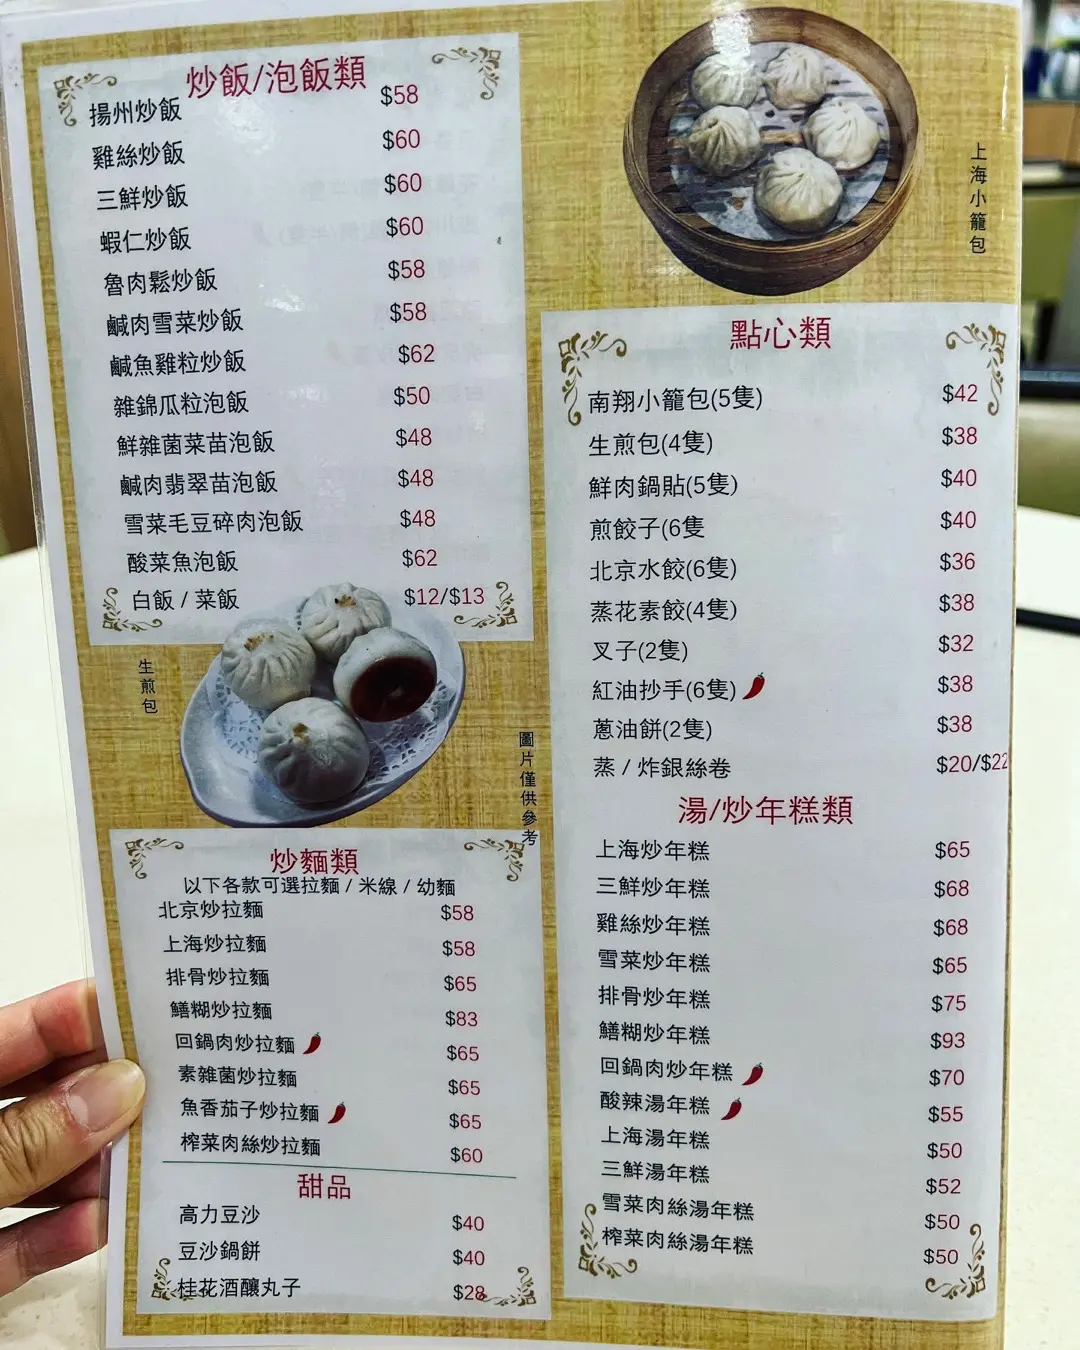 炒飯/泡飯類
揚州炒飯 $58
雞絲炒飯 $60
三鮮炒飯 $60
蝦仁炒飯 $60
魯肉鬆炒飯 $58
鹹肉雪菜炒飯 $58
鹹魚雞粒炒飯 $62
雜錦瓜粒泡飯 $50
鮮雜菌菜苗泡飯 $48
鹹肉翡翠苗泡飯 $48
雪菜毛豆碎肉泡飯 $48
酸菜魚泡飯 $62
白飯 / 菜飯 $12/$13
生煎包
圖片僅供參考
炒麵類
以下各款可選拉麵 / 米線 / 幼麵
北京炒拉麵 $58
上海炒拉麵 $58
排骨炒拉麵 $65
鱔糊炒拉麵 $83
回鍋肉炒拉麵 $65
素雜菌炒拉麵 $65
魚香茄子炒拉麵 $65
榨菜肉絲炒拉麵 $60
甜品
高力豆沙 $40
豆沙鍋餅 $40
桂花酒釀丸子 $28
上海小籠包
點心類
南翔小籠包(5隻) $42
生煎包(4隻) $38
鮮肉鍋貼(5隻) $40
煎餃子(6隻 $40
北京水餃(6隻) $36
蒸花素餃(4隻) $38
叉子(2隻) $32
紅油抄手(6隻) $38
蔥油餅(2隻) $38
蒸 / 炸銀絲卷 $20/$22
湯/炒年糕類
上海炒年糕 $65
三鮮炒年糕 $68
雞絲炒年糕 $68
雪菜炒年糕 $65
排骨炒年糕 $75
鱔糊炒年糕 $93
回鍋肉炒年糕 $70
酸辣湯年糕 $55
上海湯年糕 $50
三鮮湯年糕 $52
雪菜肉絲湯年糕 $50
榨菜肉絲湯年糕 $50